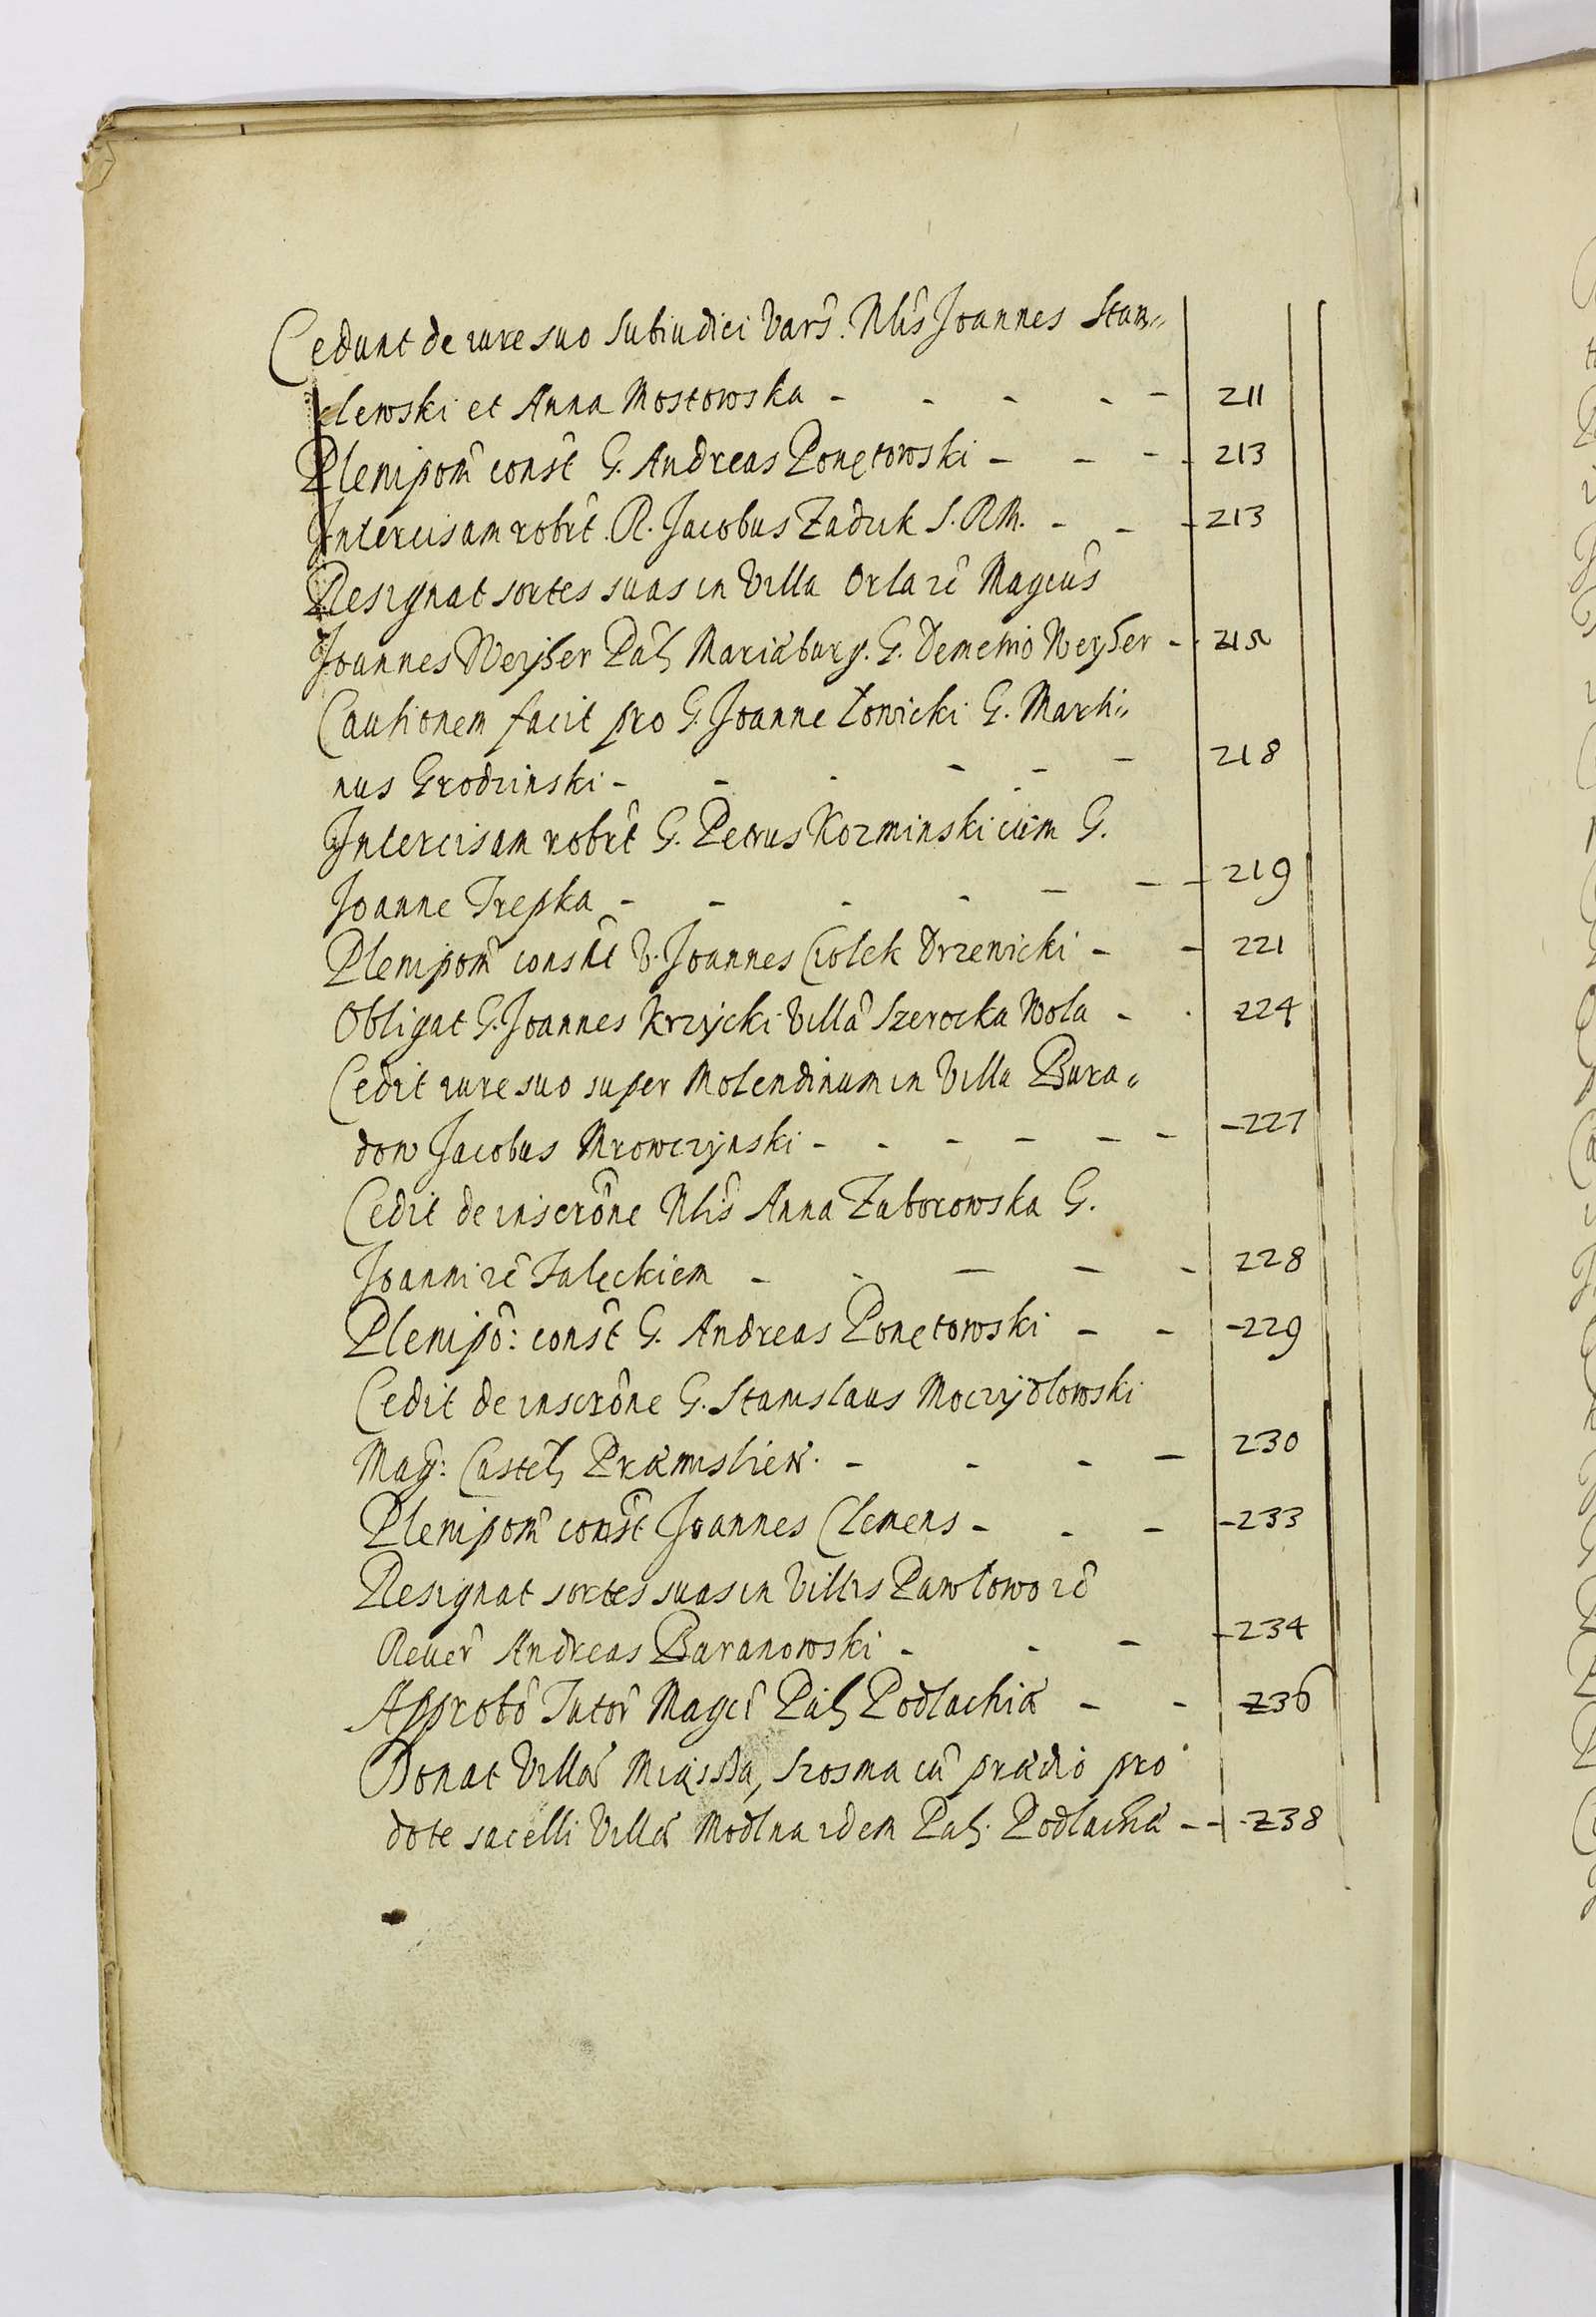 Cedunt de iure suo Subiudici Vars̃. Nlis̃ Joannes Stan„
clewski et Anna Mostowska - - - - - 211
Plenipom̃ const̃ G. Andreas Ponętowski - - - - 213
Intercisam robr̃t. R. Jacobus Zaduk S. R. M. - - - 213
Resignat sortes suas in Villa Orla zẽ Magcus̃
Joannes Weyher Pal̃ Mariæburg. G. Demetrio Weyher - - 215
Cautionem facit pro G. Joanne Łowicki G. Marti„
nus Grodzinski - - - - - - 218
Intercisam robr̃t G. Petrus Kozminski cum G.
Joanne Trepka - - - - - - - 219
Plenipom̃ constt̃ V. Joannes Ciołek Drzewicki - - 221
Obligat G. Joannes Krzycki Villã Szeroka Wola - - 224
Cedit iure suo super Molendinum in Villa Bura„
dow Jacobus Mrowczynski - - - - - - - 227
Cedit de inscrõne Nlis̃ Anna Zaborowska G.
Joanni zẽ Faleckiem - - - - - 228
Plenipõ: const̃ G. Andreas Ponętowski - - - 229
Cedit de inscrõne G. Stanislaus Moczydłowski
Mag̃: Castel̃ Præmislien̄. - - - - 230
Plenipom̃ const̃ Joannes Clemens - - - - 233
Resignat sortes suas in Villis Pawłowo zẽ
Reuer̃ Andreas Baranowski - - - - 234
Approbõ Tutor̃ Magci̇̃ Pal̃ Podlachiæ - - 236
Donat Villas Szosma cũ prædio pro
dote sacelli Villæ Modlna idem Pal̃. Podlachiæ - - - 238